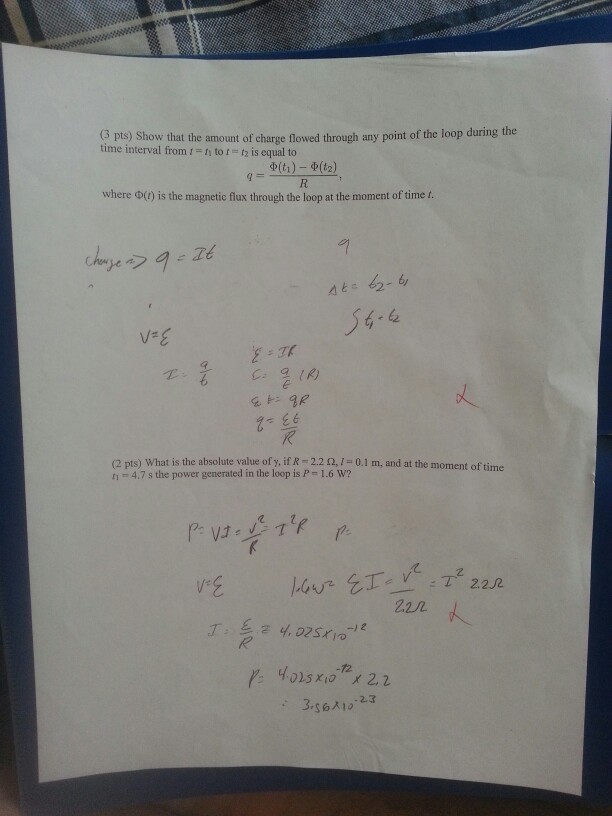 (3 pts) Show that the amount of charge flowed through any point of the loop during the
time interval from t = t₁ to t = t₂ is equal to
q = Φ(t₁) − Φ(t₂) / R,
where Φ(t) is the magnetic flux through the loop at the moment of time t.
charge => q = It
q
Δt = t₂ - t₁
∫ t₁ - t₂
V = ℰ
ℰ = IR
I = q/t
ℰ = q/t (R)
ℰt = qR
q = ℰt/R
(2 pts) What is the absolute value of γ, if R = 2.2 Ω, l = 0.1 m, and at the moment of time
t₁ = 4.7 s the power generated in the loop is P = 1.6 W?
P = VI = V²/R = I²R P=
V = ℰ
1.6W = ℰI = V²/2.2Ω = I² 2.2Ω
I = ℰ/R = 4.025x10⁻¹²
P = 4.025x10⁻¹² x 2.2
= 3.56x10⁻²³